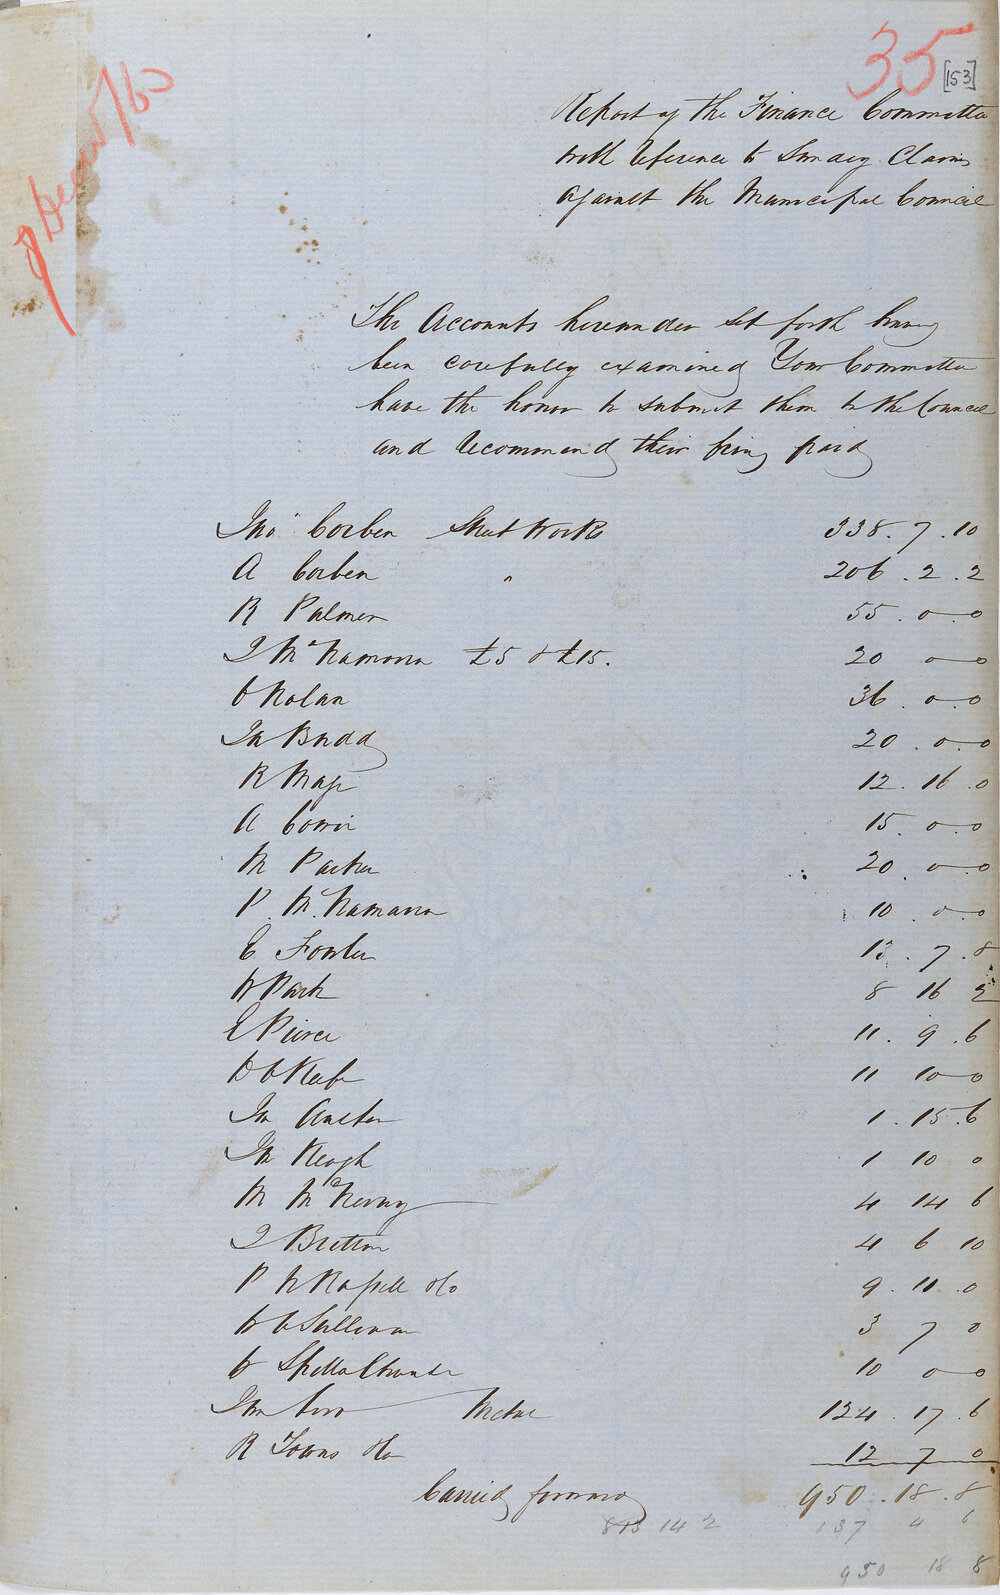 35
[153]
Decr /60
Report of the Finance Committee
with reference to Sundry Claims
against the Municipal Council
The Accounts hereunder set forth having
been carefully examined Your Committee
have the honor to submit them to the Council
and recommend their being paid
Jno Corben Street Works 338. 7. 10
A Corben " 206. 2. 2
R Palmer 55. 0. 0
J McNamara £5 & £15. 20 0 0
Nolan 36. 0. 0
Budd 20. 0. 0
R 12. 16. 0
A 15. 0. 0
M Parker 20. 0. 0
P. McNamara 10. 0. 0
E Fowler 13. 7. 8
W Park 8 16 2
E Pierce 11. 9. 6
11 10 0
1. 15. 6
Keogh 1 10 0
M 4 14 6
J Britton 4 6 10
P N Russell &Co 9. 11. 0
Sullivan 3 7 0
10 0 0
Metal 124. 17. 6
R Towns &Co 12 7 0
Carried forward 950. 18. 8
813 14 2 137 4 6
950 18 8